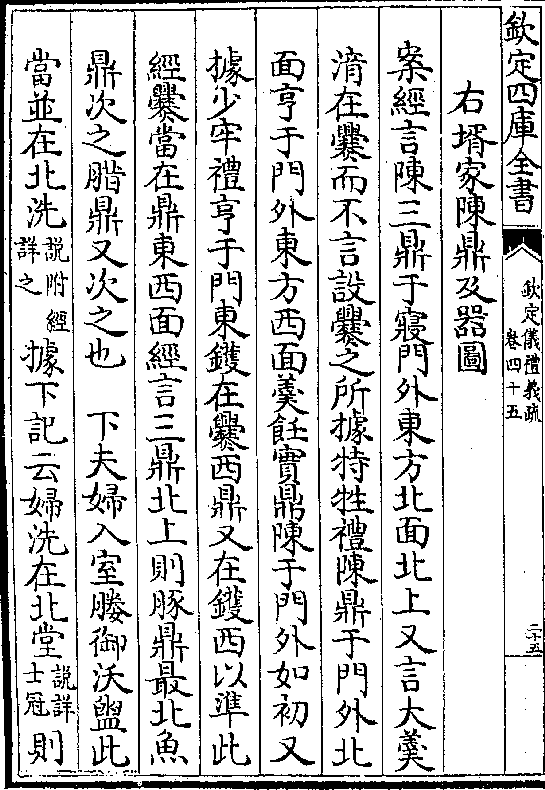 欽定四庫全書
欽定儀禮義疏
卷四十五
二十五
右壻家陳鼎及器圖
案經言陳三鼎于寢門外東方北面北上又言大羹
湇在爨而不言設爨之所據特牲禮陳鼎于門外北
面亨于門外東方西面羹飪實鼎陳于門外如初又
據少牢禮亨于門東鑊在爨西鼎又在鑊西以準此
經爨當在鼎東西面經言三鼎北上則豚鼎最北魚
鼎次之腊鼎又次之也　下夫婦入室媵御沃盥此
當並在北洗說附經詳之據下記云婦洗在北堂說詳士冠則